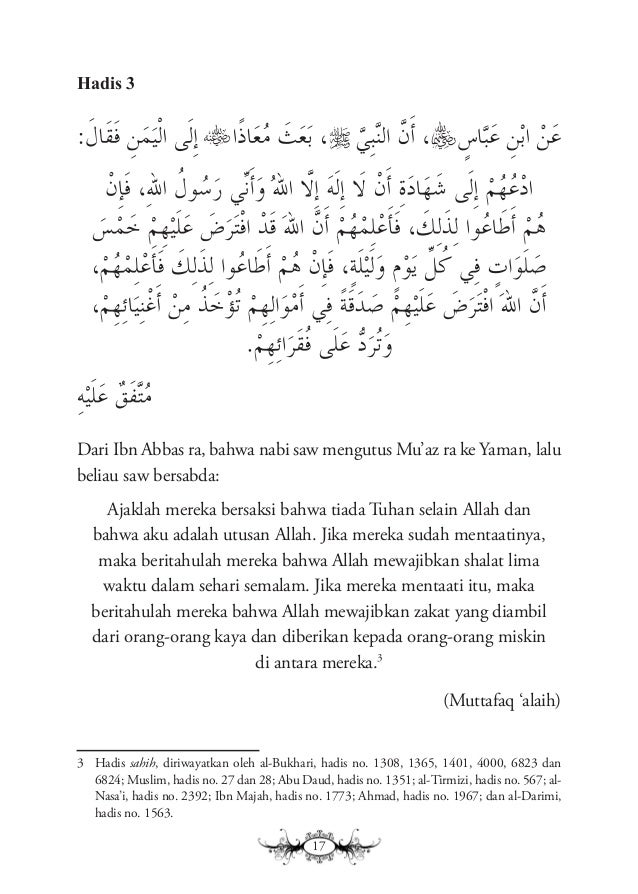 Hadis 3
عَنْ ابْنِ عَبَّاسٍ ﷺ، أَنَّ النَّبِيَّ ﷺ، بَعَثَ مُعَاذًا ﷺ إِلَى الْيَمَنِ فَقَالَ:
ادْعُهُمْ إِلَى شَهَادَةِ أَنْ لَا إِلَهَ إِلَّا اللهُ وَأَنِّي رَسُولُ اللهِ، فَإِنْ
هُمْ أَطَاعُوا لِذَلِكَ، فَأَعْلِمْهُمْ أَنَّ اللهَ قَدْ افْتَرَضَ عَلَيْهِمْ خَمْسَ
صَلَوَاتٍ فِي كُلِّ يَوْمٍ وَلَيْلَةٍ، فَإِنْ هُمْ أَطَاعُوا لِذَلِكَ فَأَعْلِمْهُمْ،
أَنَّ اللهَ افْتَرَضَ عَلَيْهِمْ صَدَقَةً فِي أَمْوَالِهِمْ تُؤْخَذُ مِنْ أَغْنِيَائِهِمْ،
وَتُرَدُّ عَلَى فُقَرَائِهِمْ.
مُتَّفَقٌ عَلَيْهِ
Dari Ibn Abbas ra, bahwa nabi saw mengutus Mu’az ra ke Yaman, lalu
beliau saw bersabda:
Ajaklah mereka bersaksi bahwa tiada Tuhan selain Allah dan
bahwa aku adalah utusan Allah. Jika mereka sudah mentaatinya,
maka beritahulah mereka bahwa Allah mewajibkan shalat lima
waktu dalam sehari semalam. Jika mereka mentaati itu, maka
beritahulah mereka bahwa Allah mewajibkan zakat yang diambil
dari orang-orang kaya dan diberikan kepada orang-orang miskin
di antara mereka.³
(Muttafaq ‘alaih)
3 Hadis sahih, diriwayatkan oleh al-Bukhari, hadis no. 1308, 1365, 1401, 4000, 6823 dan
6824; Muslim, hadis no. 27 dan 28; Abu Daud, hadis no. 1351; al-Tirmizi, hadis no. 567; al-
Nasa’i, hadis no. 2392; Ibn Majah, hadis no. 1773; Ahmad, hadis no. 1967; dan al-Darimi,
hadis no. 1563.
17